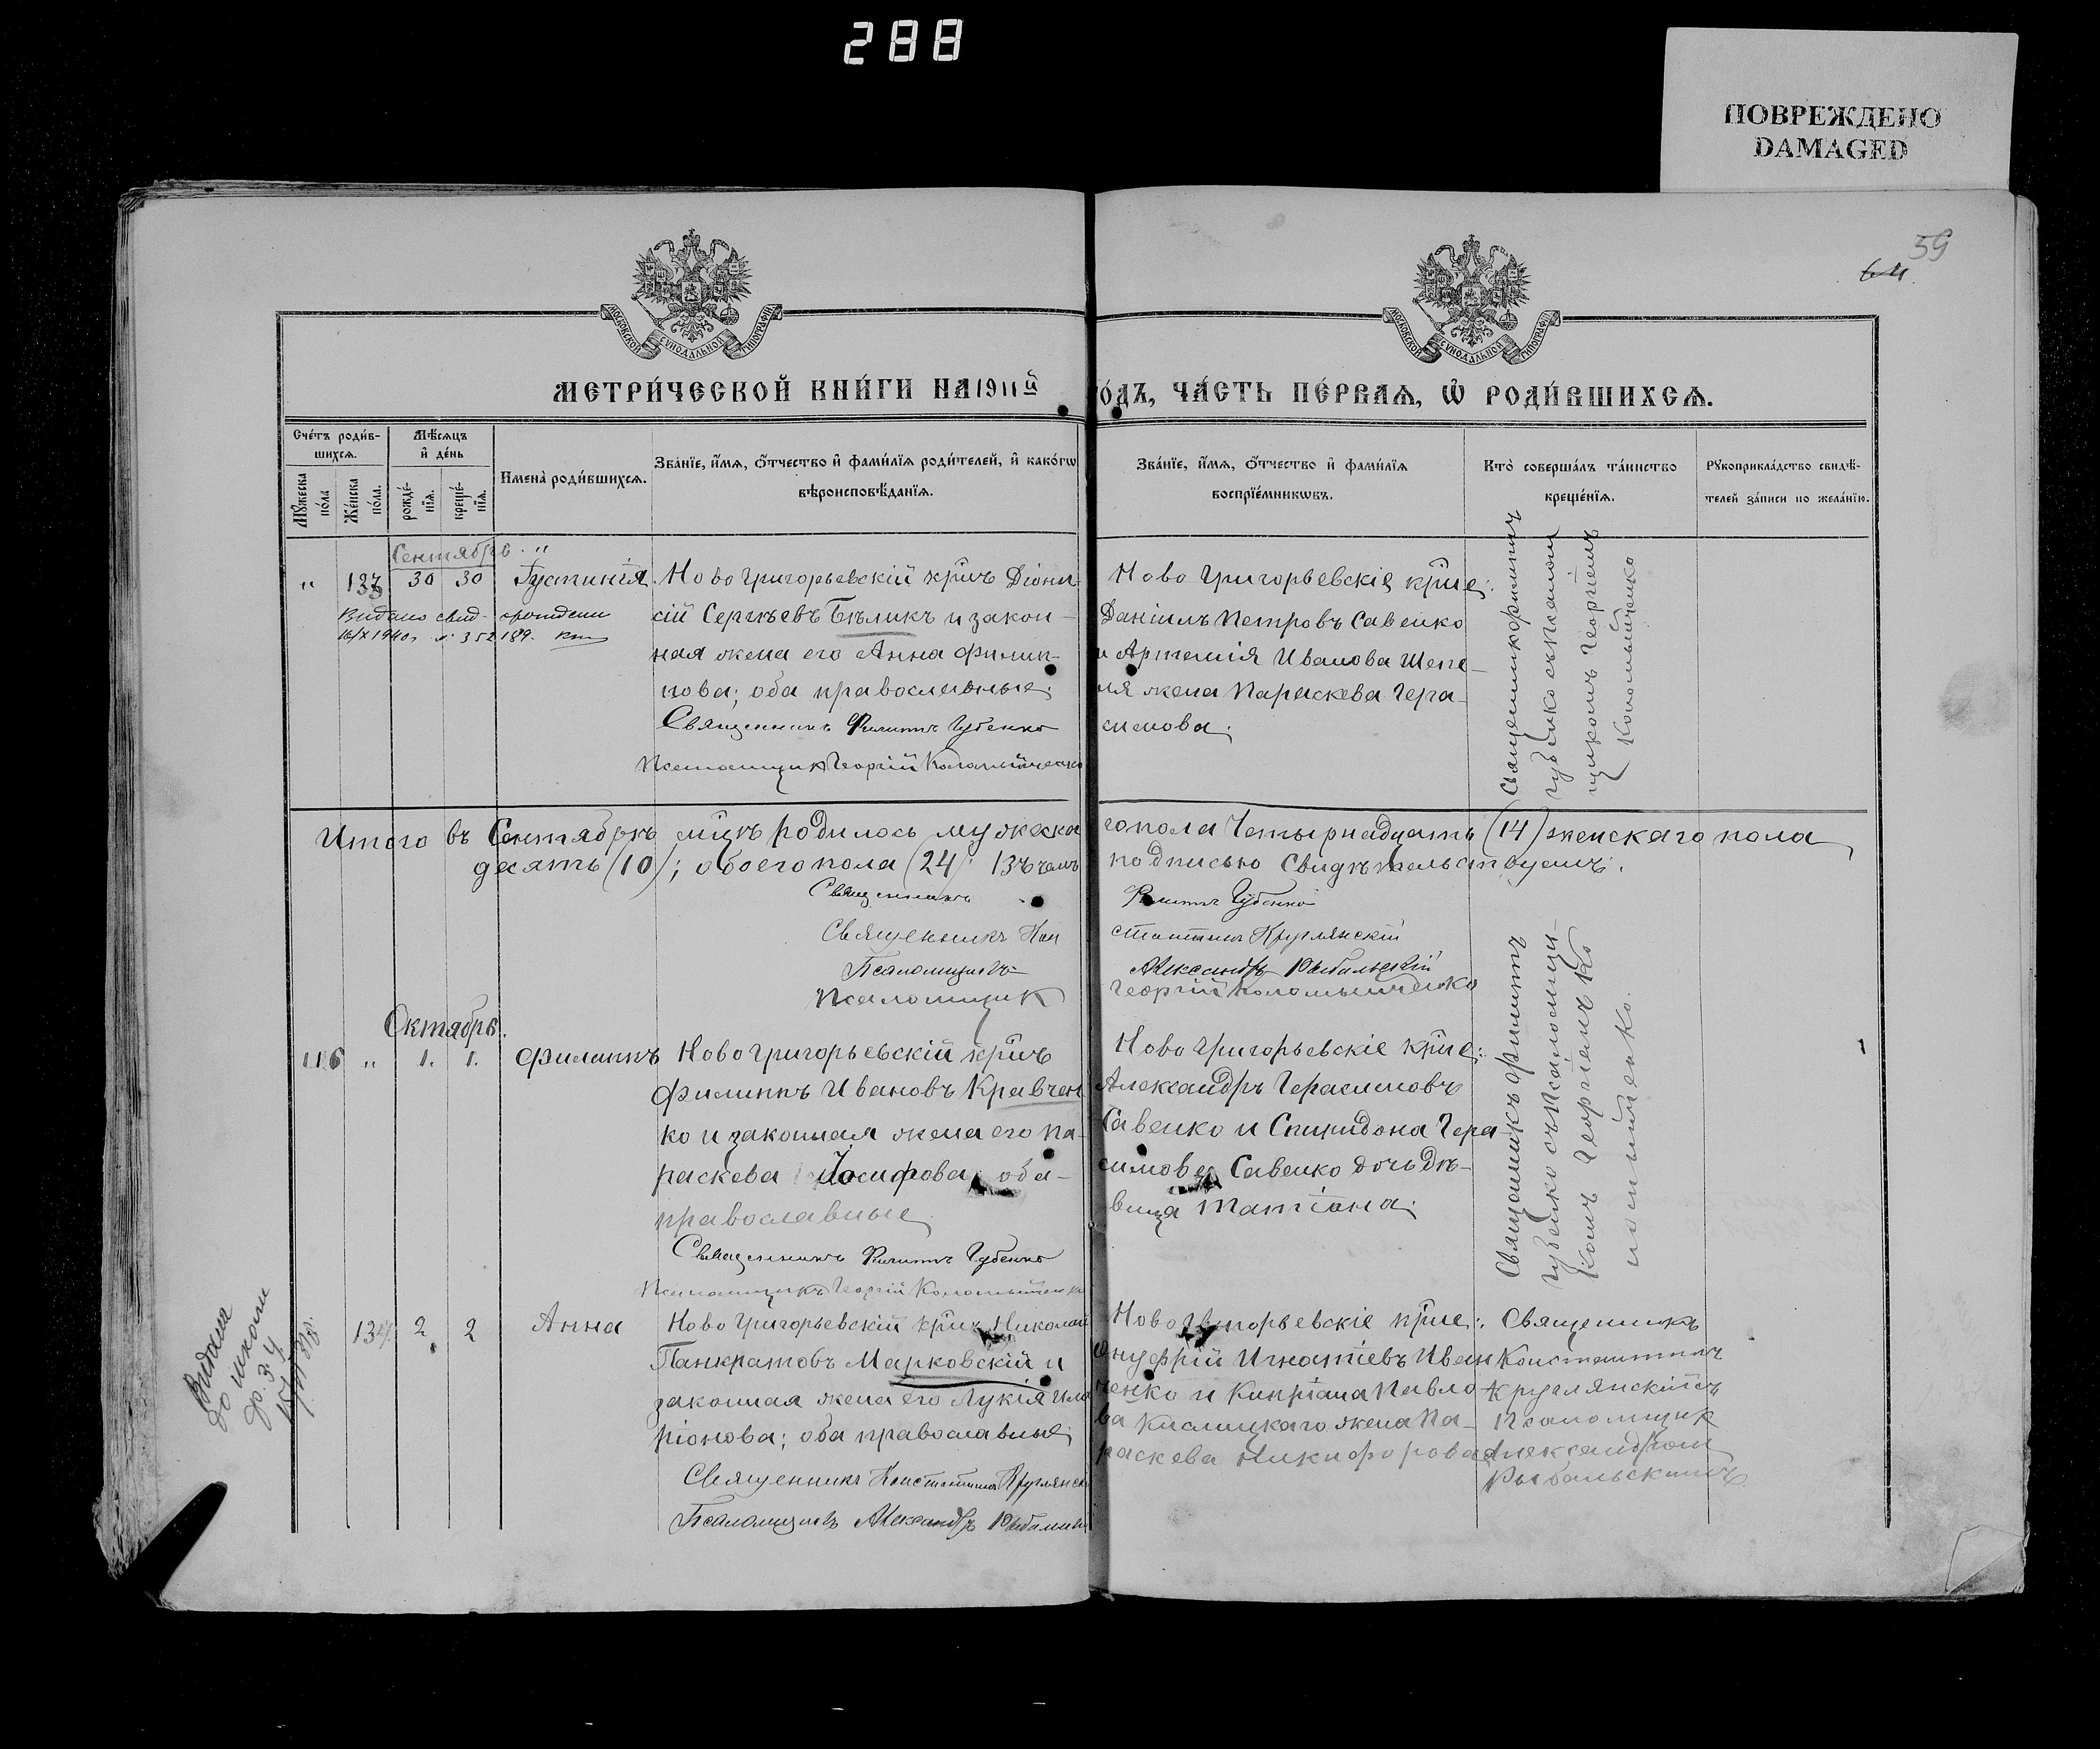 288
ПОВРЕЖДЕНО
DAMAGED
59
МОСКОВСКОЙ СѴНОДАЛЬНОЙ ТИПОГРАФІИ
МОСКОВСКОЙ СѴНОДАЛЬНОЙ ТИПОГРАФІИ
МЕТРИ́ЧЕСКОЙ КНИ́ГИ НА 1911й
ГО́ДЪ, ЧА́СТЬ ПЕ́РВАѦ, Ѡ҆ РОДИ́ВШИХСѦ.
Сче́тъ роди́в-
шихсѧ.
Мꙋ́жеска
по́ла
Же́нска
по́ла.
Мѣ́сѧцъ
и҆ де́нь
рожде́-
нїѧ.
креще́-
нїѧ.
Имена̀ роди́вшихсѧ.
Зва́нїе, и҆́мѧ, ѻ҆́тчество и҆ фами́лїѧ роди́телей, и҆ како́гѡ
вѣроисповѣ́данїѧ.
Зва́нїе, и҆́мѧ, ѻ҆́тчество и҆ фами́лїѧ
воспрїе́мникѡвъ.
Кто̀ соверша́лъ та́инство
креще́нїѧ.
Рꙋкоприкла́дство свидѣ́-
телей за́писи по жела́нїю.
Сентябрь
" 133 30 30 Густинія
Видано свид.
16/X 1940 г. № 352189.
Ново Григорьевскій кр̃нъ Діони-
сій Сергѣевъ Бѣликъ и закон-
ная жена его Анна Филип-
пова; оба православные;
Священникъ Филиппъ Губенко
Псаломщикъ Георгій Коломыйченко
Ново Григорьевскіе кр̃не;
Даніилъ Петровъ Савенко
и Артемія Иванова Шепе-
ля жена Параскева Гера-
симова;
Священникъ Филиппъ
Губенко съ псалом
щикомъ Георгіемъ
Коломыйченко
Итого въ Сентябрѣ м̃цѣ родилось мужеска
го пола Четырнадцать (14) женскаго пола
десять (10); обоего пола (24) Въ чемъ
подписью Свидѣтельствуемъ:
Священникъ Филиппъ Губенко
Священникъ Константинъ Круглянскій
Псаломщикъ Александръ Рыбальскій
Псаломщикъ Георгій Коломыйченко
Октябрь.
116 " 1. 1. Филиппъ
Ново Григорьевскій кр̃нъ
Филиппъ Ивановъ Кравчен
ко и законная жена его Па-
раскева Іосифова; оба-
православные
Священникъ Филиппъ Губенко
Псаломщикъ Георгій Коломыйченко
Ново Григорьевскіе кр̃не;
Александръ Герасимовъ
Савенко и Спиридона Гера-
симова Савенко дочь дѣ-
вица Татіана;
Священникъ Филиппъ
Губенко съ Псаломщи-
комъ Георгіемъ Ко
ломыйченко.
Видана
до школи
134 2 2 Анна
Ново Григорьевскій кр̃нъ Николай
Панкратовъ Марковскій и
законная жена его Лукія Ила
ріонова; оба православные;
Священникъ Константинъ Круглянск
Псаломщикъ Александръ Рыбальск
Ново Григорьевскіе кр̃не;
Онуфрій Игнатіевъ Иван
ченко и Кипріана Павло-
ва Кислицкаго жена Па-
раскева Никифорова
Священникъ
Константинъ
Круглянскій съ
Псаломщик
Александром
Рыбальскимъ